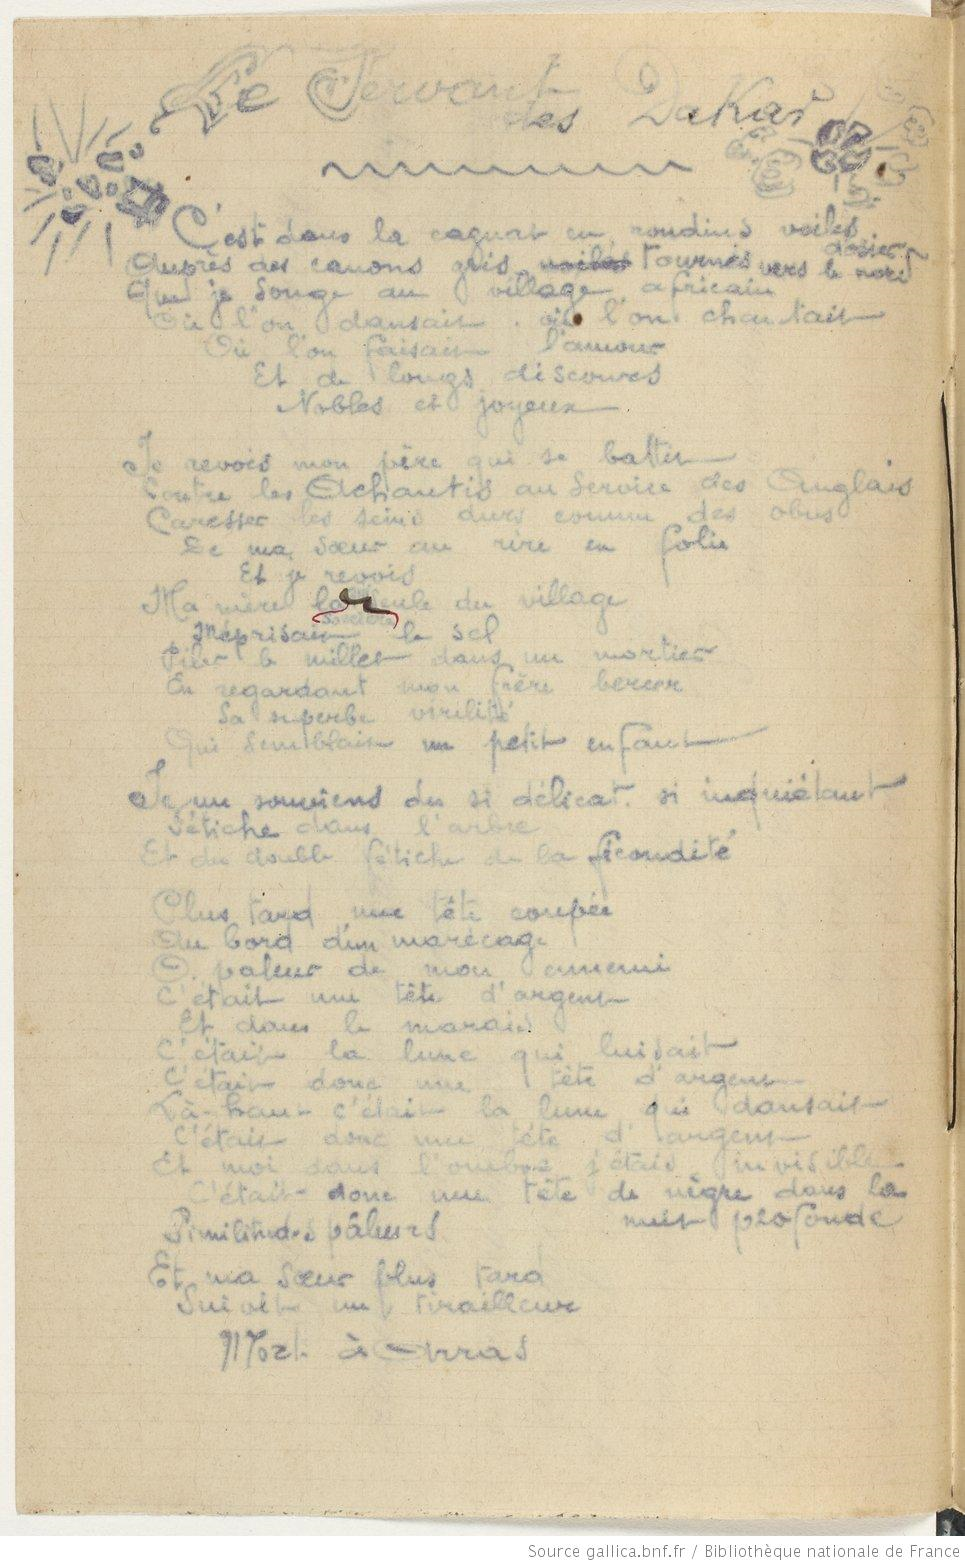 Le Servant
des Dakar
C'est dans la cagnat en rondins voilés
d'osier
Auprès des canons gris voilés tournés vers le nord
Que je songe au village africain
Où l'on dansait où l'on chantait
Où l'on faisait l'amour
Et de longs discours
Nobles et joyeux
Je revois mon père qui se battit
Contre les Achantis au service des Anglais
Caresser les seins durs comme des obus
De ma sœur au rire en folie
Et je revois
Ma mère la seule du village
sorcière
méprisait le sel
Piler le millet dans un mortier
En regardant mon frère bercer
Sa superbe virilité
Qui semblait un petit enfant
Je me souviens du si délicat si inquiétant
Fétiche dans l'arbre
Et du double fétiche de la fécondité
Plus tard une tête coupée
Au bord d'un marécage
O pâleur de mon ennemi
C'était une tête d'argent
Et dans le marais
C'était la lune qui luisait
C'était donc une tête d'argent
Là-haut c'était la lune qui dansait
C'était donc une tête d'argent
Et moi dans l'ombre j'étais invisible
C'était donc une tête de nègre dans la
nuit profonde
Similitudes pâleurs
Et ma sœur plus tard
Suivit un tirailleur
Mort à Arras
Source gallica.bnf.fr / Bibliothèque nationale de France